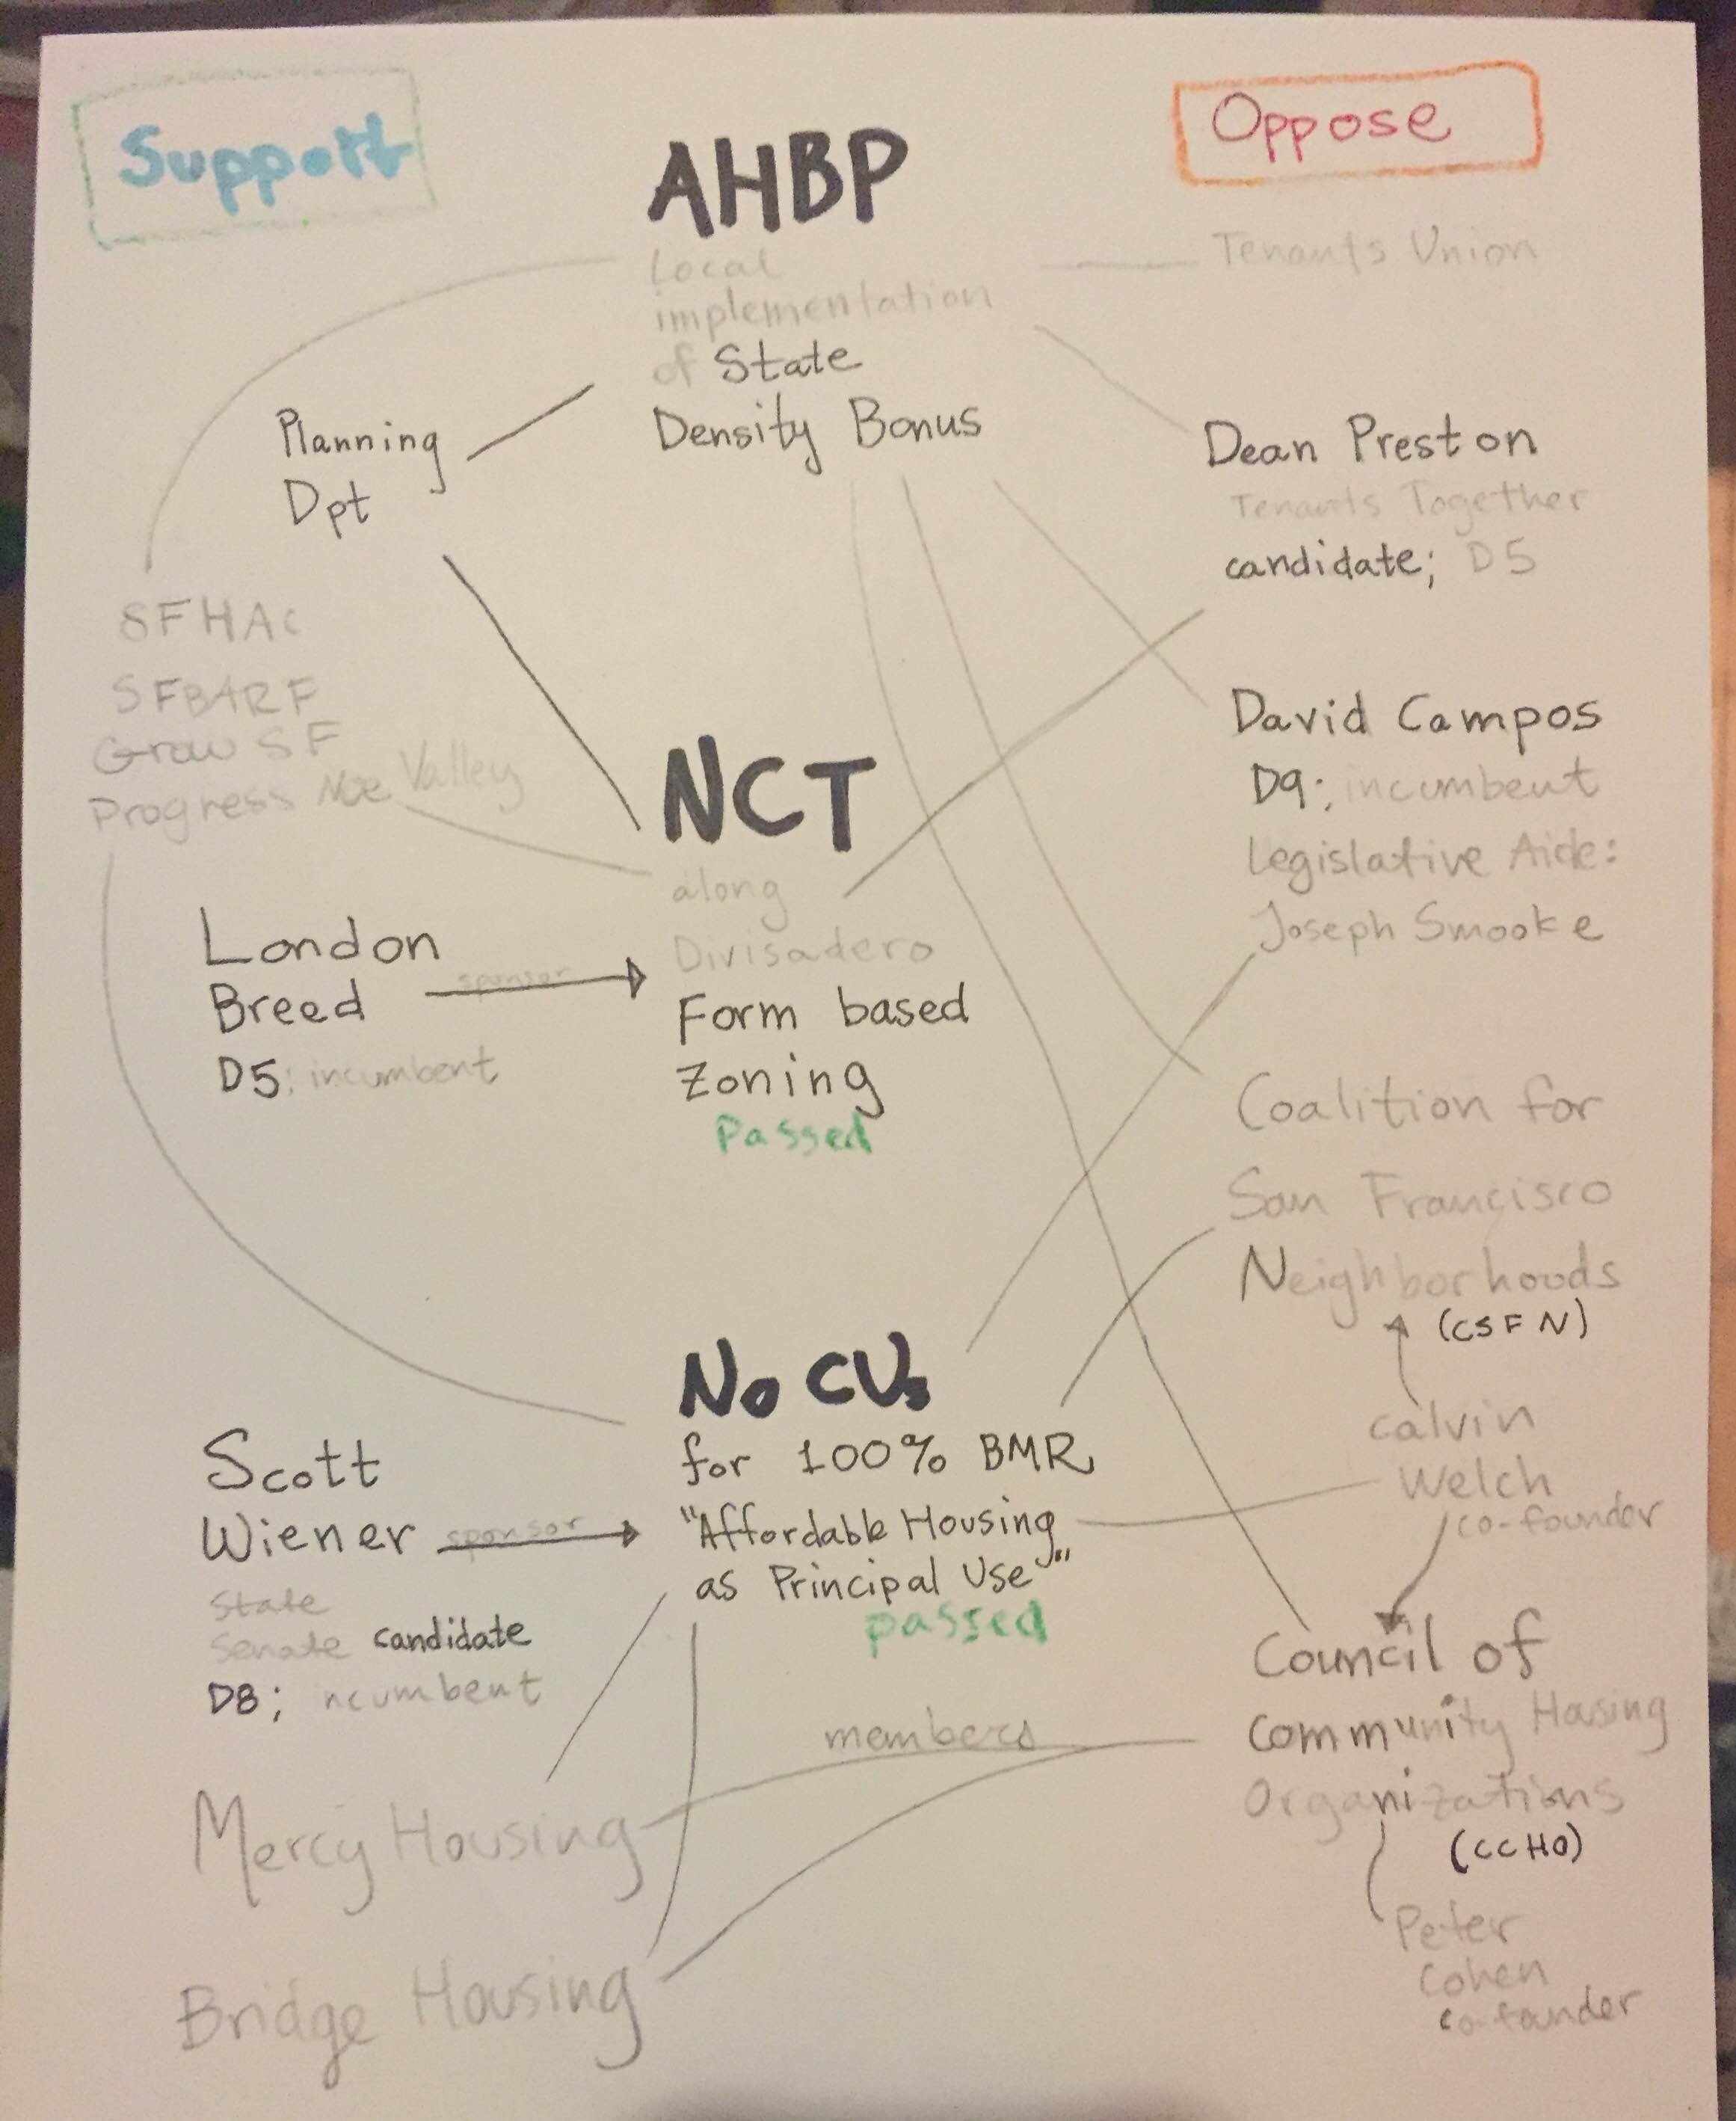 Support
AHBP
Oppose
Local
implementation
of State
Density Bonus
Planning
Dpt
SFHAC
SFBARF
Grow SF
Progress Noe Valley
Tenants Union
Dean Preston
Tenants Together
candidate; D5
David Campos
D9; incumbent
Legislative Aide:
Joseph Smooke
NCT
along
Divisadero
Form based
Zoning
Passed
London
Breed
D5: incumbent
sponsor
Coalition for
San Francisco
Neighborhoods
(CSFN)
Calvin
Welch
co-founder
No CUs
for 100% BMR
"Affordable Housing
as Principal Use"
passed
Scott
Wiener
sponsor
State
Senate candidate
D8; ncumbent
Mercy Housing
Bridge Housing
members
Council of
Community Housing
Organizations
(CCHO)
Peter
Cohen
co-founder